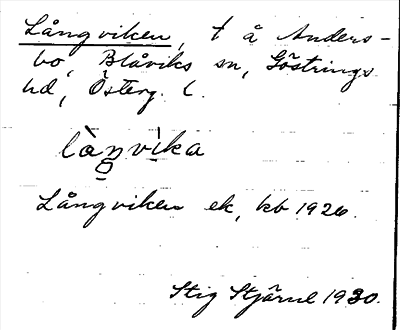 Långviken, t å Anders-
bo, Blåviks sn, Göstrings
hd, Österg. l.
làŋvìka
Långviken ek, kb 1926.
Stig Stjärne 1930.